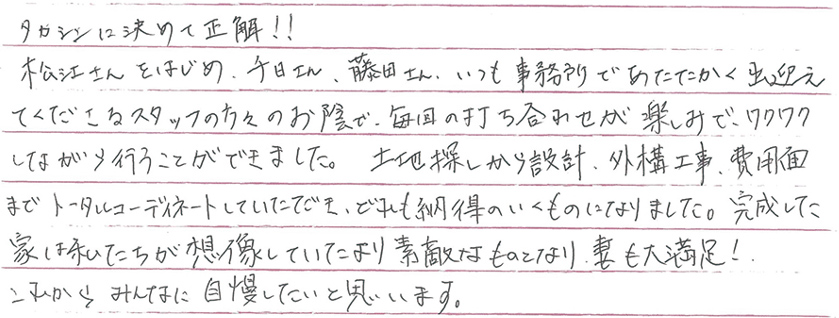 タカシンに決めて正解!!
松江さんをはじめ、千日さん、藤田さん、いつも事務所であたたかく出迎え
てくださるスタッフの方々のお陰で、毎回の打ち合わせが楽しみで、ワクワク
しながら行うことができました。 土地探しから設計、外構工事、費用面
まで トータルコーディネートしていただき、どれも納得のいくものになりました。完成した
家は私たちが想像していたより素敵なものとなり、妻も大満足!
これから みんなに自慢したいと思います。